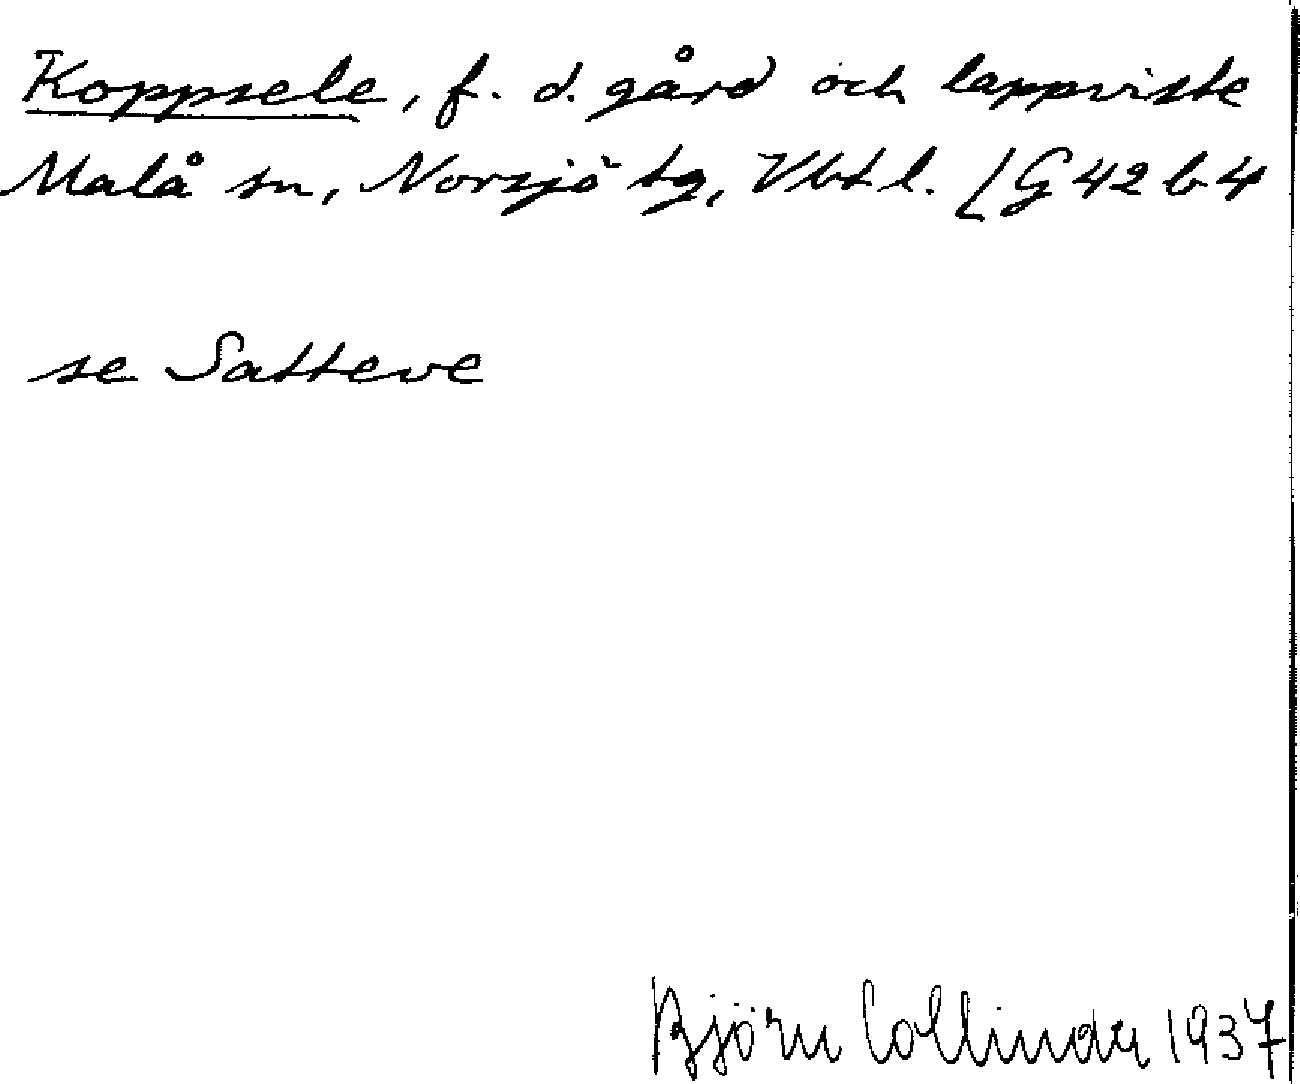 Koppsele, f. d. gård och lappviste
Malå sn, Norsjö tg, Vbtl. [G42b4
se Satteve
Björn Collinder 1937